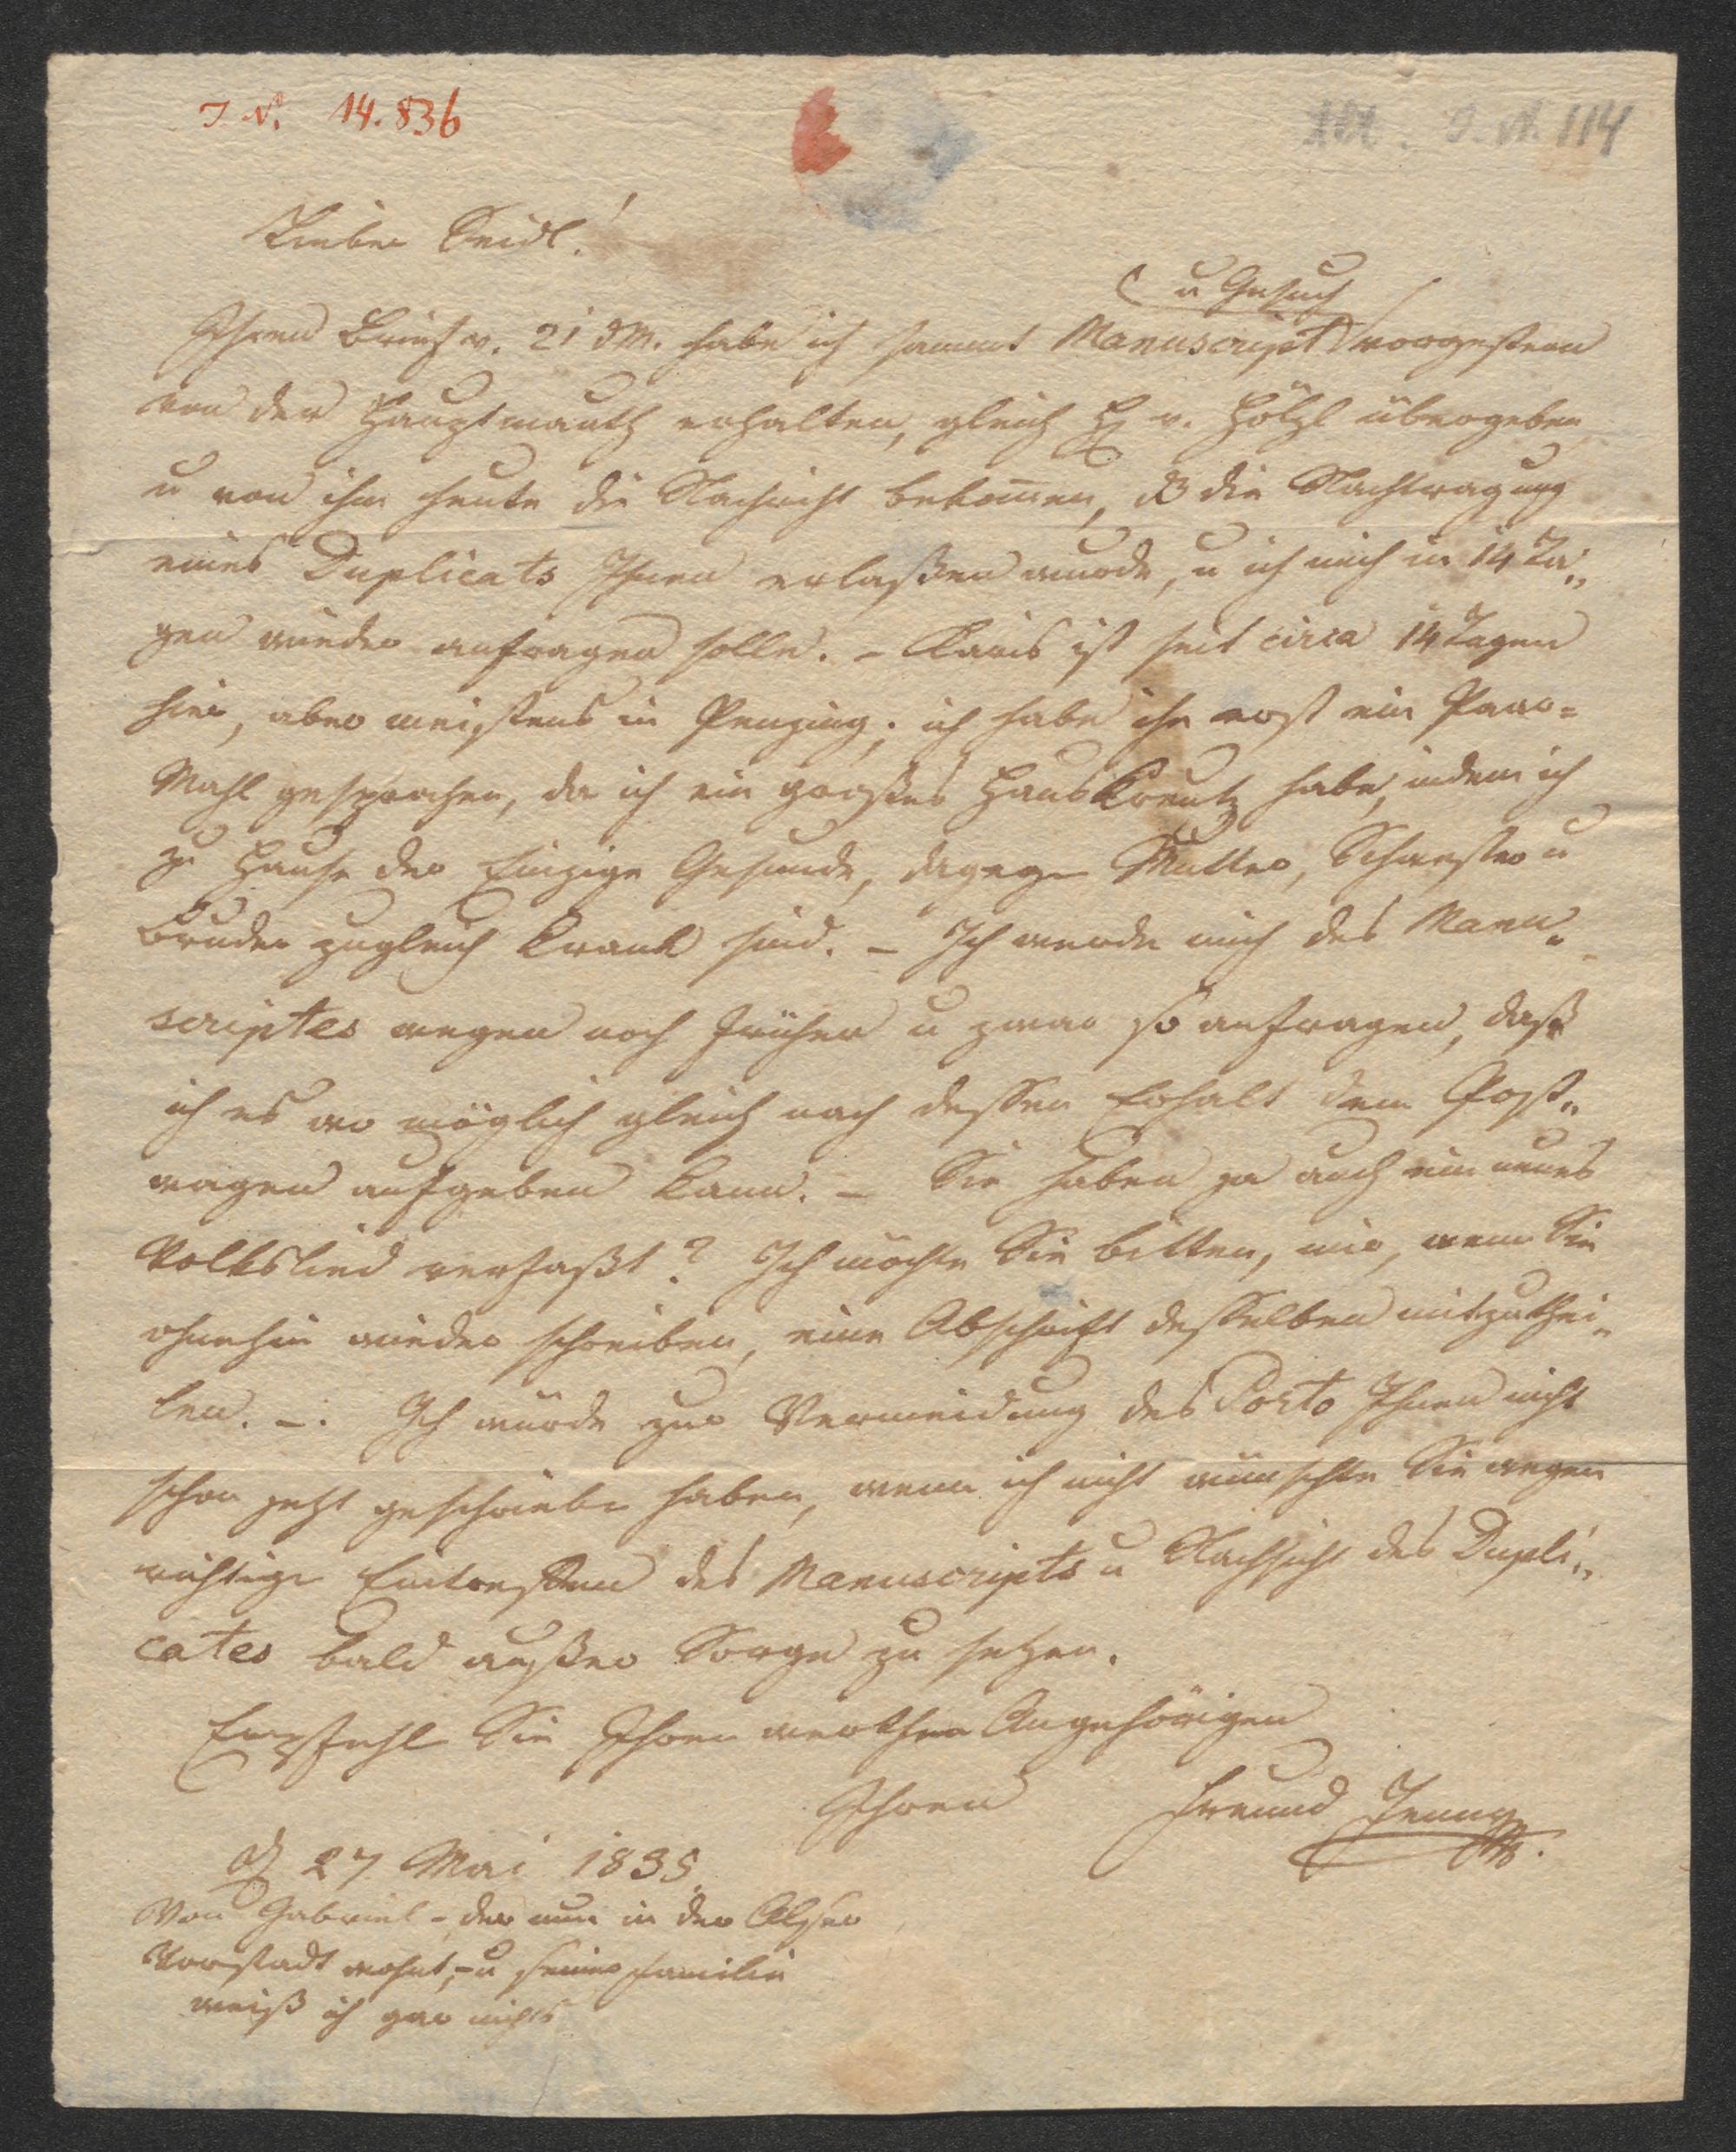 I. N. 14.836
I. N. 114
Lieber Seidl!
u Gesuch
Ihren Brief v. 21 d M. habe ich sammt Manuscript vorgestern
von der Hauptmauth erhalten, gleich H v. Hölzl übergeben
u von ihm heute die Nachricht bekommen, daß die Nachtragung
eines Duplicats Ihnen erlaßen wurde, u ich mich in 14 Ta„
gen wieder anfragen solle. – ist seit circa 14 Tagen
hier, aber meistens in Penzing; ich habe ihn erst ein Paar=
Mahl gesprochen, da ich ein großes Hauskreutz habe, indem ich
zu Hause der Einzige Gesunde, dagegen Mutter, Schwester u
Bruder zugleich krank sind. – Ich werde mich des Manu„
scriptes wegen noch früher u zwar so anfragen, daß
ich es wo möglich gleich nach dessen Erhalt dem Post„
wagen aufgeben kann. – Sie haben ja auch ein neues
Volkslied verfaßt? Ich möchte Sie bitten, mir, wenn Sie
ohnehin wieder schreiben, eine Abschrift desselben mitzuthei„
len. –. Ich würde zur Vermeidung des Porto Ihnen nicht
schon jetzt geschrieben haben, wenn ich nicht wünschte Sie wegen
richtigen Eintreffens des Manuscripts u Nachsicht des Dupli„
cates bald außer Sorge zu setzen.
Empfehl Sie Ihren werthen Angehörigen
Ihren Freund Jenny
27 Mai 1835.
Von Gabriel – der nun in der Alser
Vorstadt wohnt, – u seiner Familie
weiß ich gar nichts